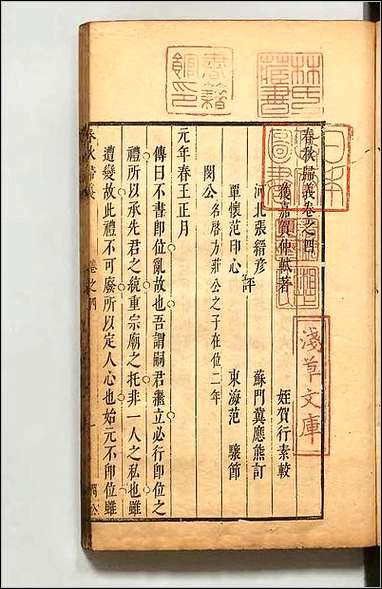 春秋歸義卷之四
獲嘉賀仲軾著
姪賀行素較
河北張縉彥
蘇門冀應熊訂
評
單懷范印心
東海范驤節
閔公名啓方莊公之子在位二年
元年春王正月
傳曰不書即位亂故也吾謂嗣君繼立必行即位之
禮所以承先君之統重宗廟之托非一人之私也雖
遭變故此禮不可廢所以定人心也始元不即位雖
春秋歸義
卷之四
一
閔公
林氏藏書
日本
圖書
書籍館印
淺草文庫